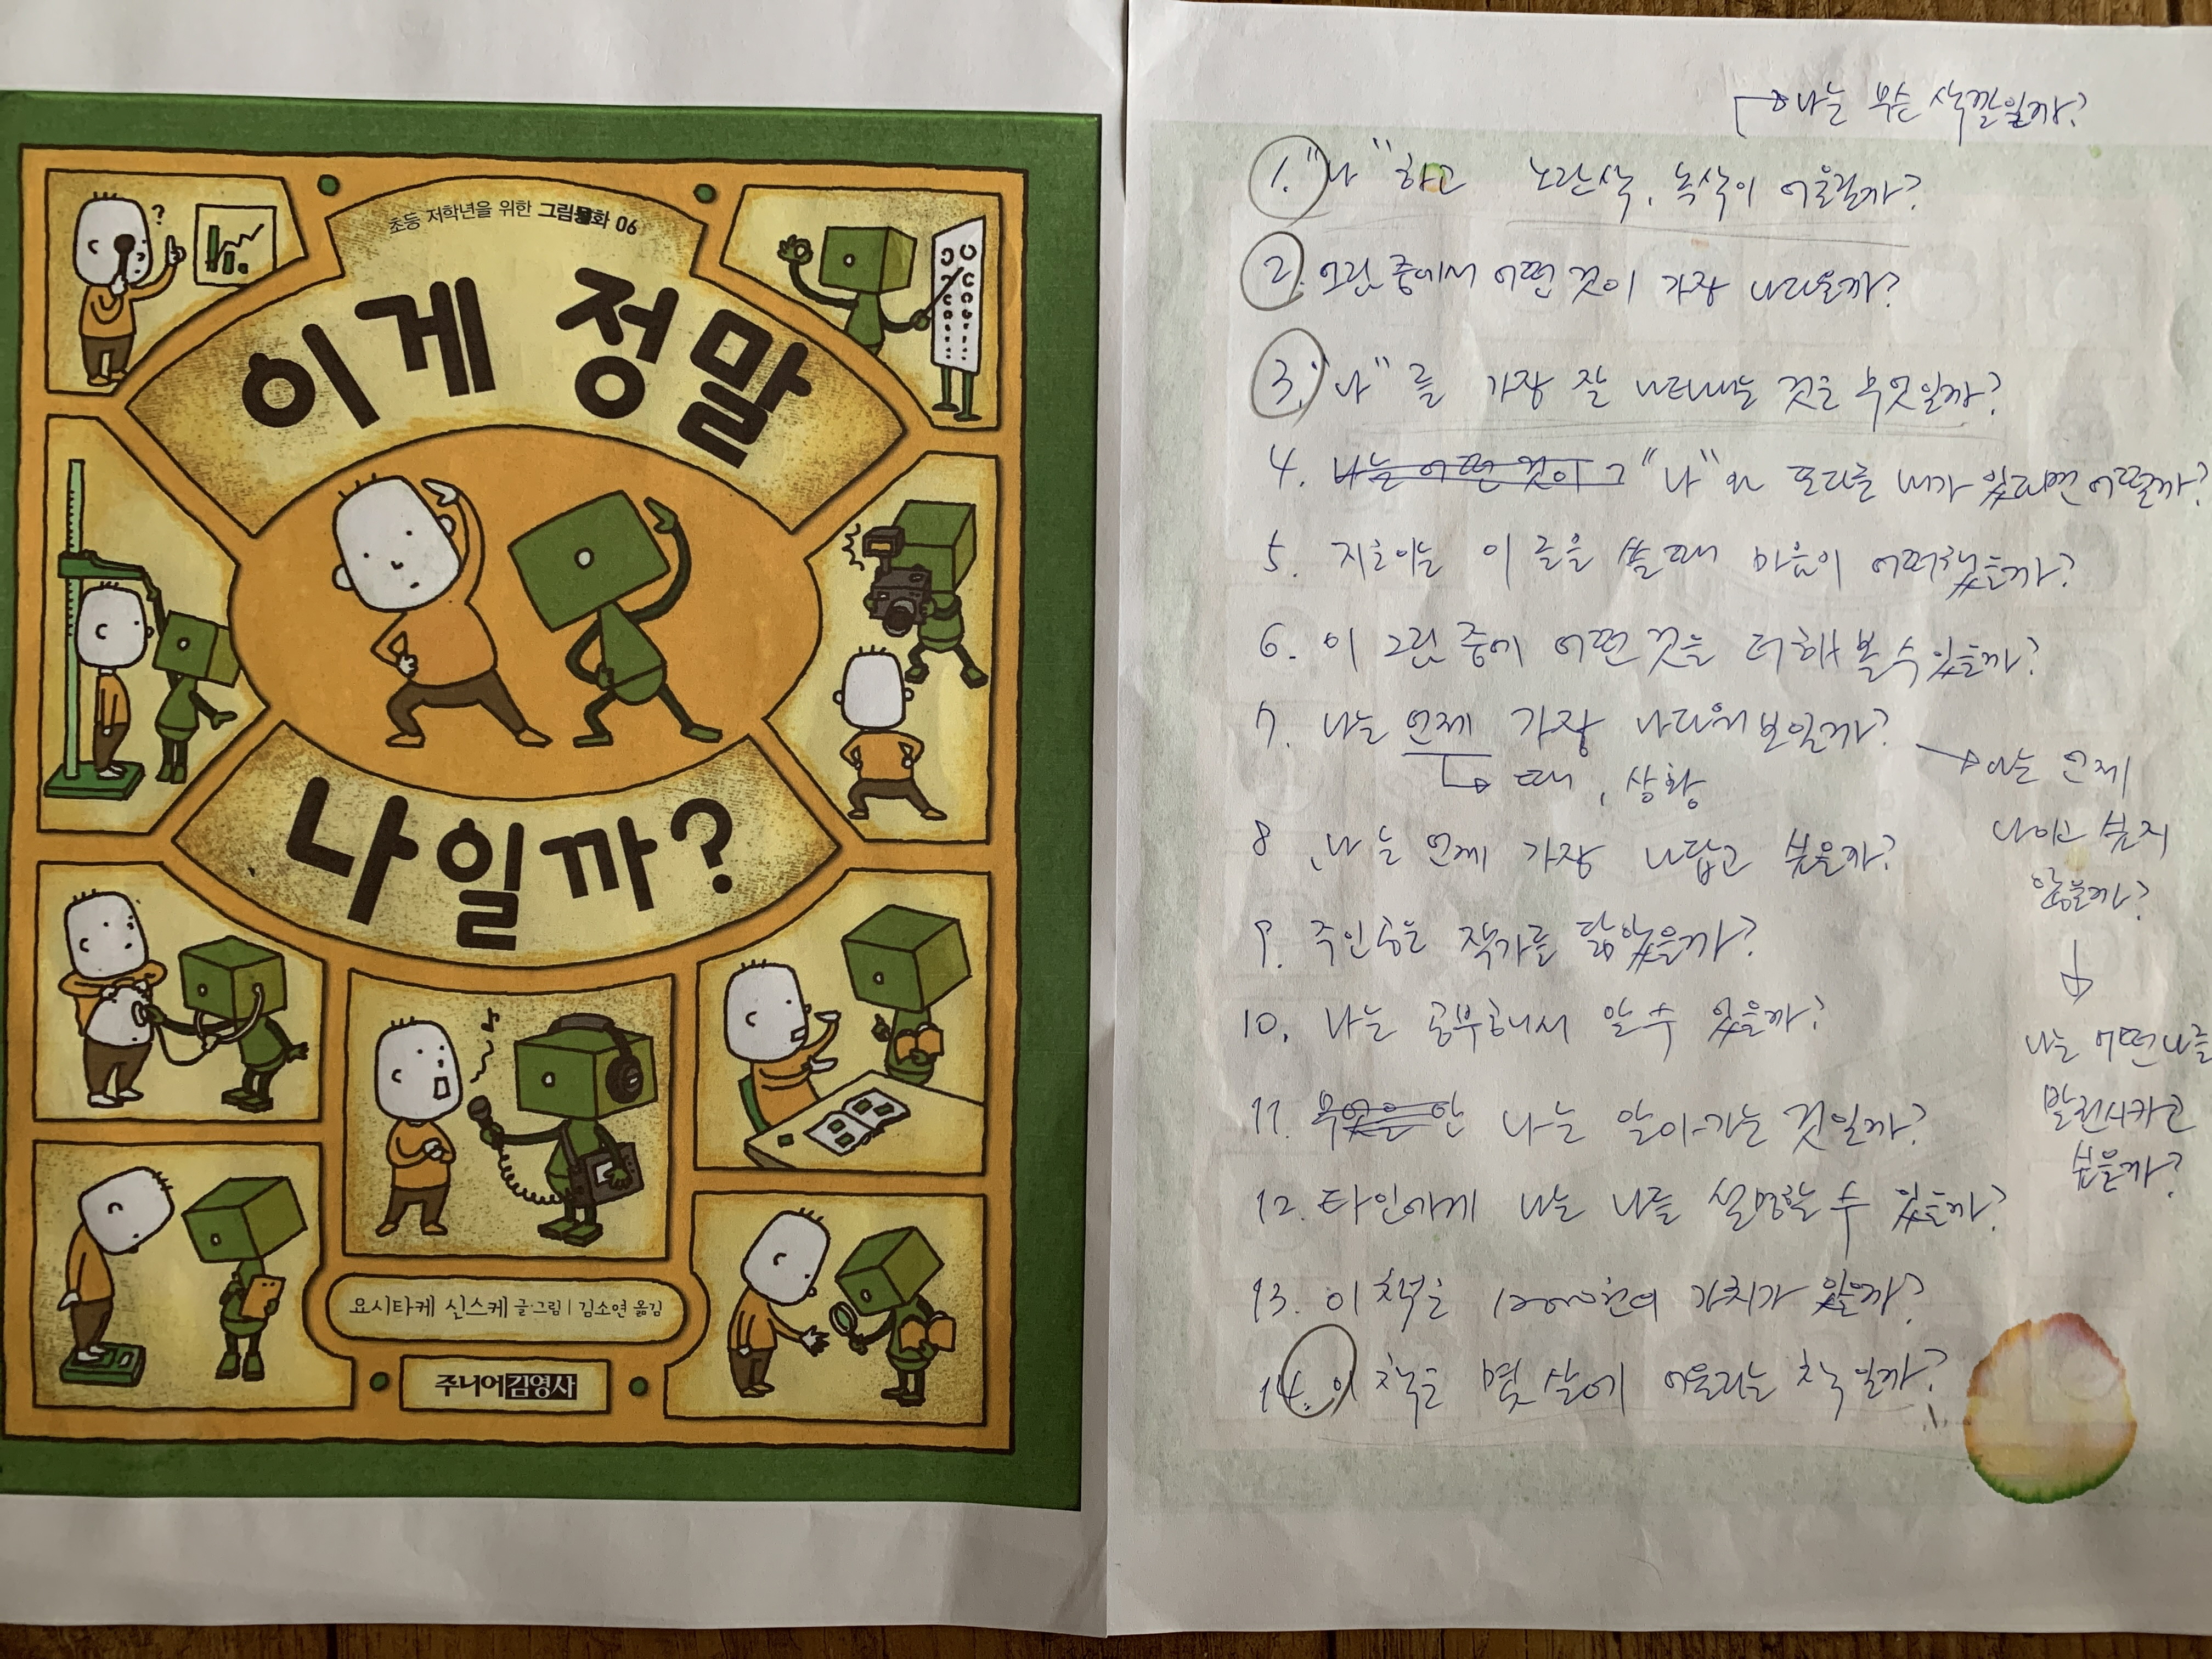 초등 저학년을 위한 그림동화 06
이게 정말
나일까?
요시타케 신스케 글·그림 | 김소연 옮김
주니어김영사
→ 나는 무슨 색깔일까?
1. "나"하고 노란색, 녹색이 어울릴까?
2. 그림 중에서 어떤 것이 가장 나다울까?
3. "나"를 가장 잘 나타내는 것은 무엇일까?
4. 나는 어떤 것이 그 "나"와 또다를 내가 있다면 어떨까?
5. 지호이는 이 글을 쓸 때 마음이 어떠했을까?
6. 이 그림 중에 어떤 것을 더 해 볼 수 있을까?
7. 나는 언제 가장 나다워 보일까?
→ 때, 상황
→ 나는 언제
나이고 싶지
않을까?
↓
나는 어떤 나를
발전시키고
싶을까?
8. 나는 언제 가장 나답고 싶을까?
9. 주인공은 작가를 닮았을까?
10. 나는 공부해서 알 수 있을까?
11. 무엇은 안 나는 알아가는 것일까?
12. 타인에게 나는 나를 설명할 수 있을까?
13. 이 책은 12000원의 가치가 있을까?
14. 이 책은 몇 살에 어울리는 책일까?